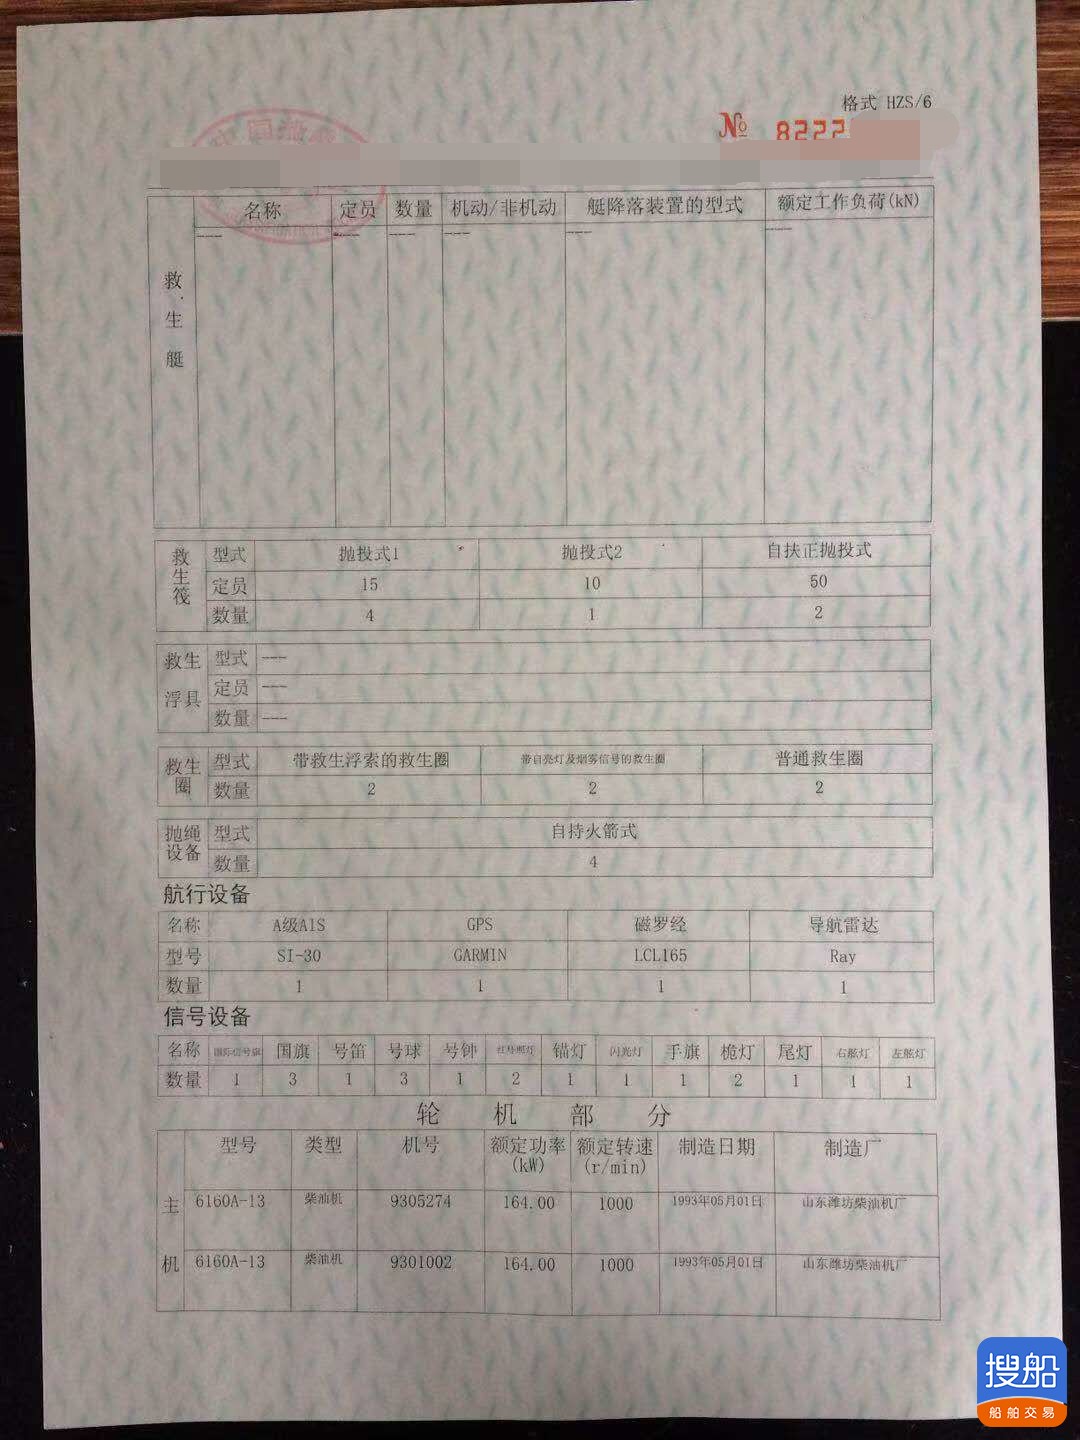 格式 HZS/6
№ 8222
名称 定员 数量 机动/非机动 艇降落装置的型式 额定工作负荷(kN)
救生艇 --- --- --- --- --- ---
救生筏 型式 抛投式1 抛投式2 自扶正抛投式
定员 15 10 50
数量 4 1 2
救生浮具 型式 ---
定员 ---
数量 ---
救生圈 型式 带救生浮索的救生圈 带自亮灯及烟雾信号的救生圈 普通救生圈
数量 2 2 2
抛绳设备 型式 自持火箭式
数量 4
航行设备
名称 A级AIS GPS 磁罗经 导航雷达
型号 SI-30 GARMIN LCL165 Ray
数量 1 1 1 1
信号设备
名称 国际信号旗 国旗 号笛 号球 号钟 红环照灯 锚灯 闪光灯 手旗 桅灯 尾灯 右舷灯 左舷灯
数量 1 3 1 3 1 2 1 1 1 2 1 1 1
轮机部分
型号 类型 机号 额定功率(kW) 额定转速(r/min) 制造日期 制造厂
主机 6160A-13 柴油机 9305274 164.00 1000 1993年05月01日 山东潍坊柴油机厂
6160A-13 柴油机 9301002 164.00 1000 1993年05月01日 山东潍坊柴油机厂
搜船
船舶交易